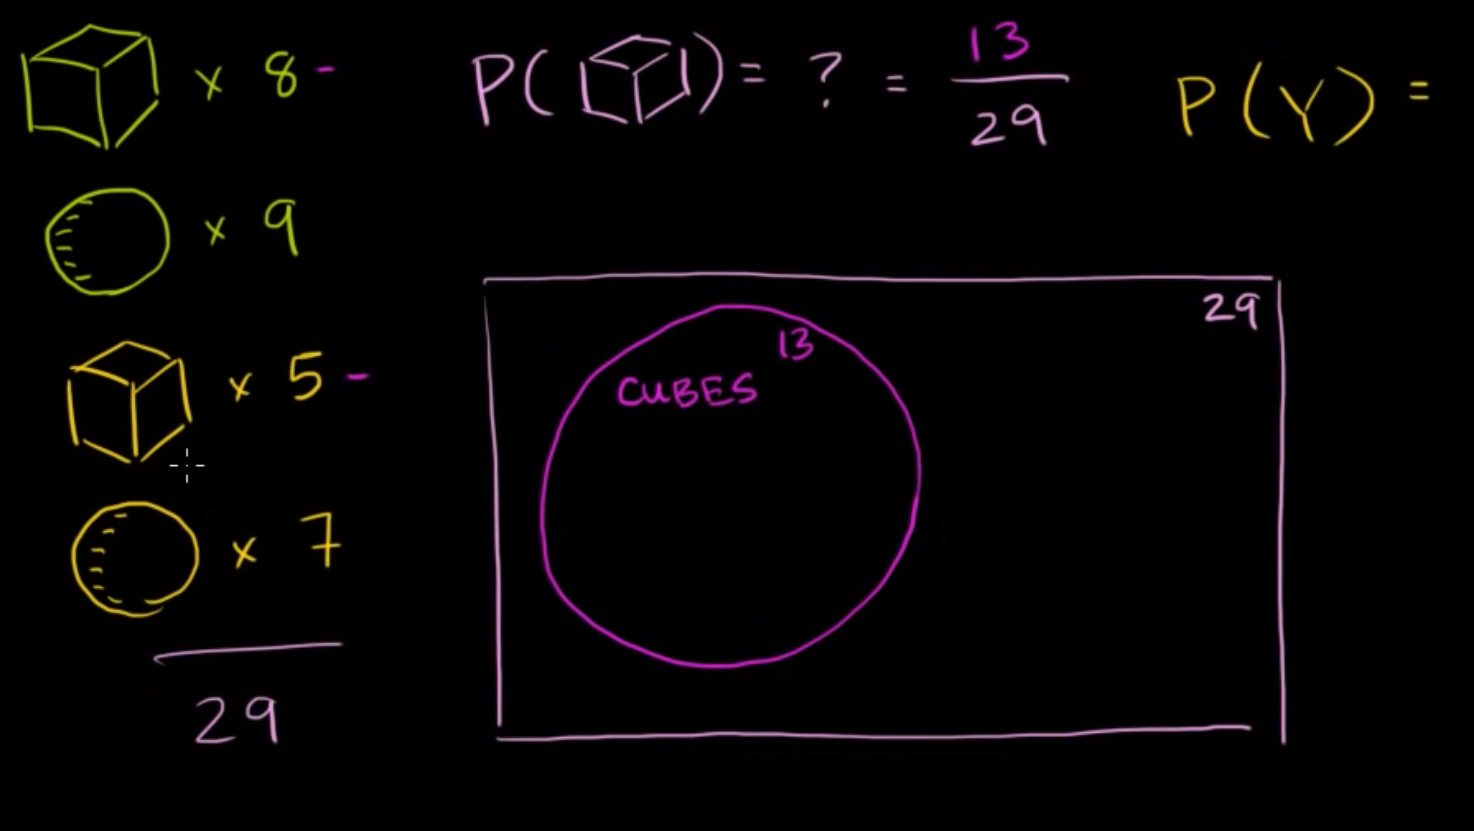 x 8 -
x 9
x 5 -
x 7
29
P( ) = ? = 13/29
P(Y) =
29
13
CUBES